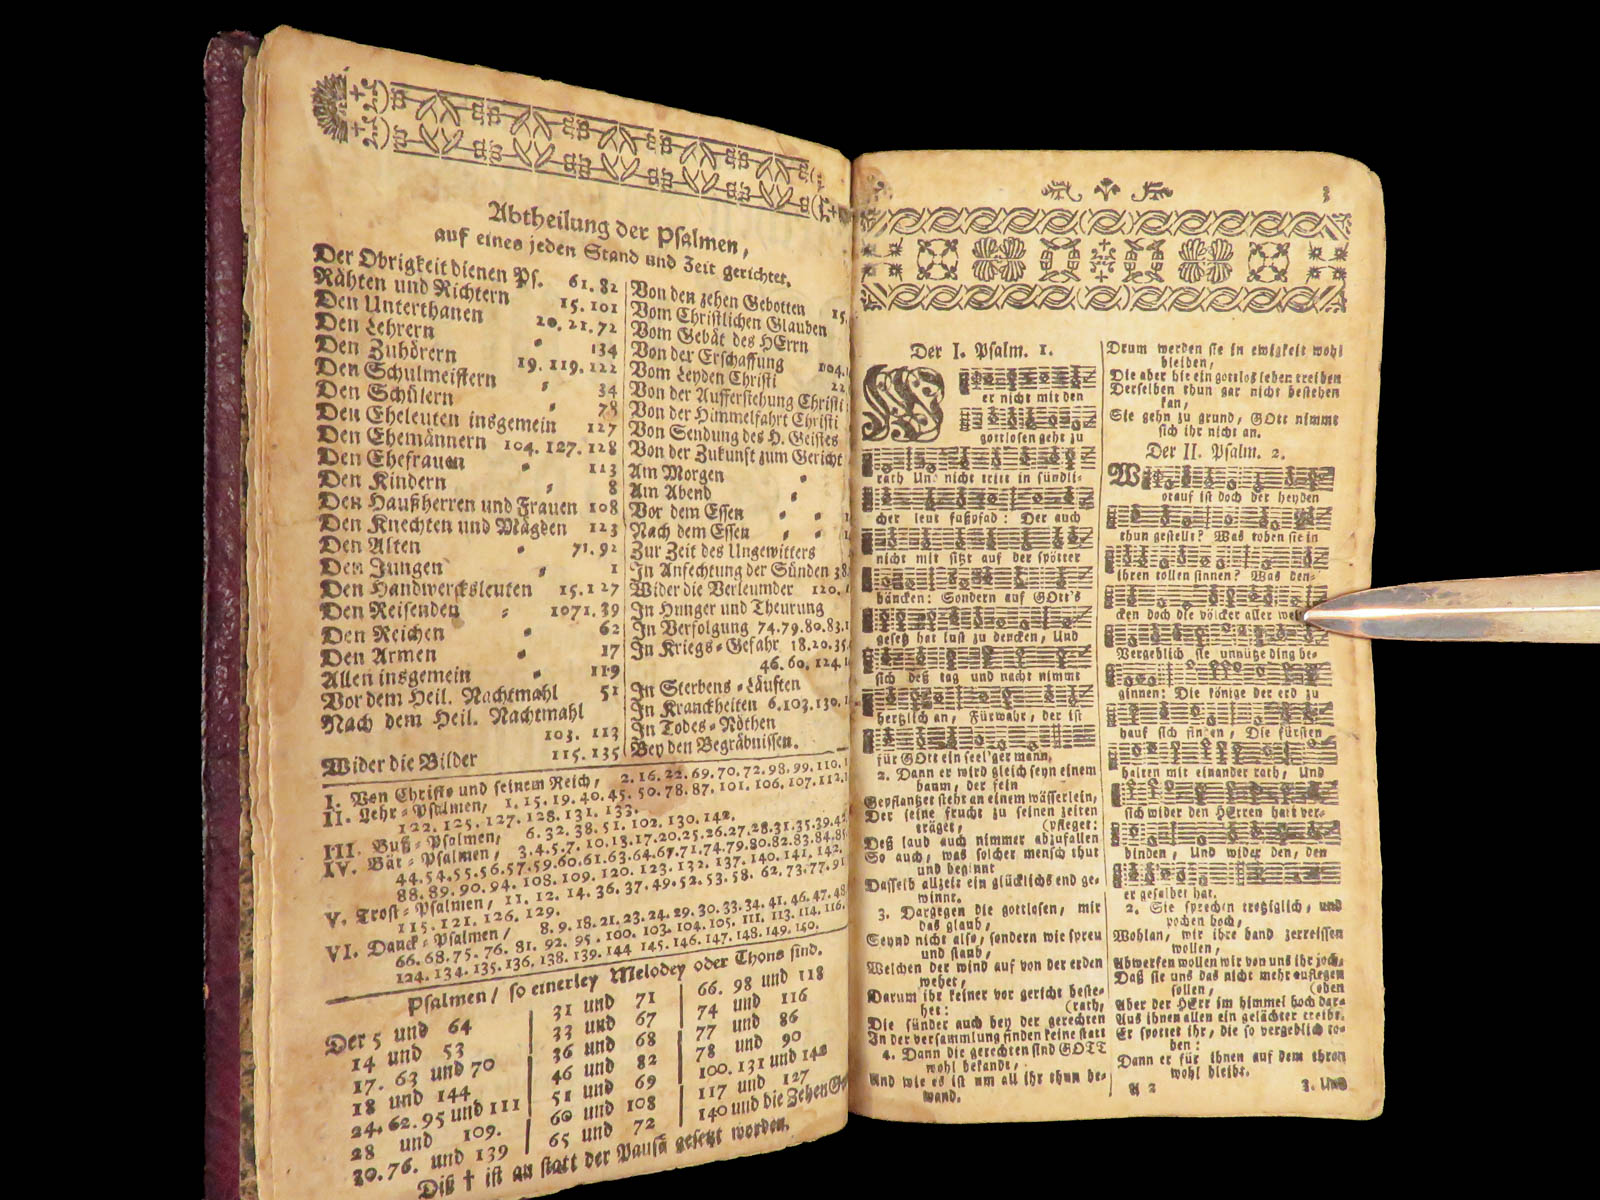 Abtheilung der Psalmen,
auf eines jeden Stand und Zeit gerichtet.
Der Obrigkeit dienen Ps. 61. 82
Rähten und Richtern 15. 101
Den Unterthanen 20. 21. 72
Den Lehrern 134
Den Zuhörern 19. 119. 122
Den Schulmeistern 34
Den Schülern 78
Den Eheleuten insgemein 127
Den Ehemännern 104. 127. 128
Den Ehefrauen 113
Den Kindern 8
Den Haußherren und Frauen 108
Den Knechten und Mägden 123
Den Alten 71. 92
Den Jungen 1
Den Handwercksleuten 15. 127
Den Reisenden 1071. 39
Den Reichen 62
Den Armen 17
Allen insgemein 119
Vor dem Heil. Nachtmahl 51
Nach dem Heil. Nachtmahl
103. 113
Wider die Bilder 115. 135
Von den zehen Gebotten 15.
Vom Christlichen Glauben
Vom Gebät des HErrn
Von der Erschaffung 104.
Vom Leyden Christi 22
Von der Aufferstehung Christi
Von der Himmelfahrt Christi
Von Sendung des H. Geistes
Von der Zukunft zum Gericht
Am Morgen
Am Abend
Vor dem Essen
Nach dem Essen
Zur Zeit des Ungewitters
In Anfechtung der Sünden 38.
Wider die Verleumder 120.
In Hunger und Theurung
In Verfolgung 74. 79. 80. 83.
In Kriegs-Gefahr 18. 20. 35.
46. 60. 124.
In Sterbens-Läufften
In Kranckheiten 6. 103. 130.
In Todes-Nöthen
Bey den Begräbnissen.
I. Von Christo und seinem Reich, 2. 16. 22. 69. 70. 72. 98. 99. 110.
II. Lehr-Psalmen, 1. 15. 19. 40. 45. 50. 78. 87. 101. 106. 107. 112.
122. 125. 127. 128. 131. 133.
III. Buß-Psalmen, 6. 32. 38. 51. 102. 130. 142.
IV. Bät-Psalmen, 3. 4. 5. 7. 10. 13. 17. 20. 25. 26. 27. 28. 31. 35. 39. 42.
44. 54. 55. 56. 57. 59. 60. 61. 63. 64. 67. 71. 74. 79. 80. 82. 83. 84. 85.
88. 89. 90. 94. 108. 109. 120. 123. 132. 137. 140. 141. 142.
V. Trost-Psalmen, 11. 12. 14. 36. 37. 49. 52. 53. 58. 62. 73. 77. 91.
115. 121. 126. 129.
VI. Danck-Psalmen, 8. 9. 18. 21. 23. 24. 29. 30. 33. 34. 41. 46. 47. 48.
66. 68. 75. 76. 81. 92. 95. 100. 103. 104. 105. 111. 113. 114. 116.
124. 134. 135. 136. 138. 139. 144 145. 146. 147. 148. 149. 140.
Psalmen / so einerley Melodey oder Thons sind.
Der 5 und 64
14 und 53
17. 63 und 70
18 und 144
24. 62. 95 und 111
28 und 109.
30. 76. und 139
31 und 71
33 und 67
36 und 68
46 und 82
51 und 69
60 und 108
65 und 72
66. 98 und 118
74 und 116
77 und 86
78 und 90
100. 131 und 142
117 und 127
140 und die Zehen
Diß † ist an statt der Pausâ gesetzt worden.
3
Der I. Psalm. 1.
Wer nicht mit den
gottlosen geht zu
rath Und nicht tritt in sündli-
cher leut fußpfad: Der auch
nicht mit sitzt auf der spötter
bäncken: Sondern auf GOtt's
gesetz hat lust zu dencken, Und
sich deß tag und nacht nimmt
hertzlich an, Fürwahr, der ist
für GOtt ein seel'ger mann.
2. Dann er wird gleich seyn einem
baum, der fein
Gepflantzet steht an einem wässerlein,
Der seine frucht zu seinen zeiten
träget, (pfleget:
Deß laub auch nimmer abzufallen
So auch, was solcher mensch thut
und beginnt
Dasselb allzeit ein glücklichs end ge-
winnt.
3. Dargegen die gottlosen, mir
das glaub,
Seynd nicht also, sondern wie spreu
und staub,
Welchen der wind auf von der erden
wehet,
Darum ihr keiner vor gericht beste-
het: (rath,
Die sünder auch bey der gerechten
In der versammlung finden keine statt
4. Dann die gerechten sind GOTT
wohl bekandt,
Und wie es ist um all ihr thun be-
wand.
Drum werden sie in ewigkeit wohl
bleiben,
Die aber die ein gottlos leben treiben
Derselben thun gar nicht bestehen
kan,
Sie gehn zu grund, GOtt nimmt
sich ihr nicht an.
Der II. Psalm. 2.
Worauf ist doch der heyden
thun gestellt? Was toben sie in
ihren tollen sinnen? Was den-
cken doch die völcker aller welt
Vergeblich sie unnütze ding be-
ginnen: Die könige der erd zu
hauf sich finden, Die fürsten
halten mit einander rath, Und
sich wider den HErren hart ver-
binden, Und wider den, den
er gesalbet hat.
2. Sie sprechen trotziglich, und
pochen hoch,
Wohlan, wir ihre band zerreissen
wollen,
Abwerfen wollen wir von uns ihr joch,
Daß sie uns das nicht mehr auflegen
sollen, (oben
Aber der HErr im himmel hoch dar-
Aus ihnen allen ein gelächter treibt.
Er spottet ihr, die so vergeblich to-
ben:
Dann er für ihnen auf dem thron
wohl bleibt.
A 2 3. Und